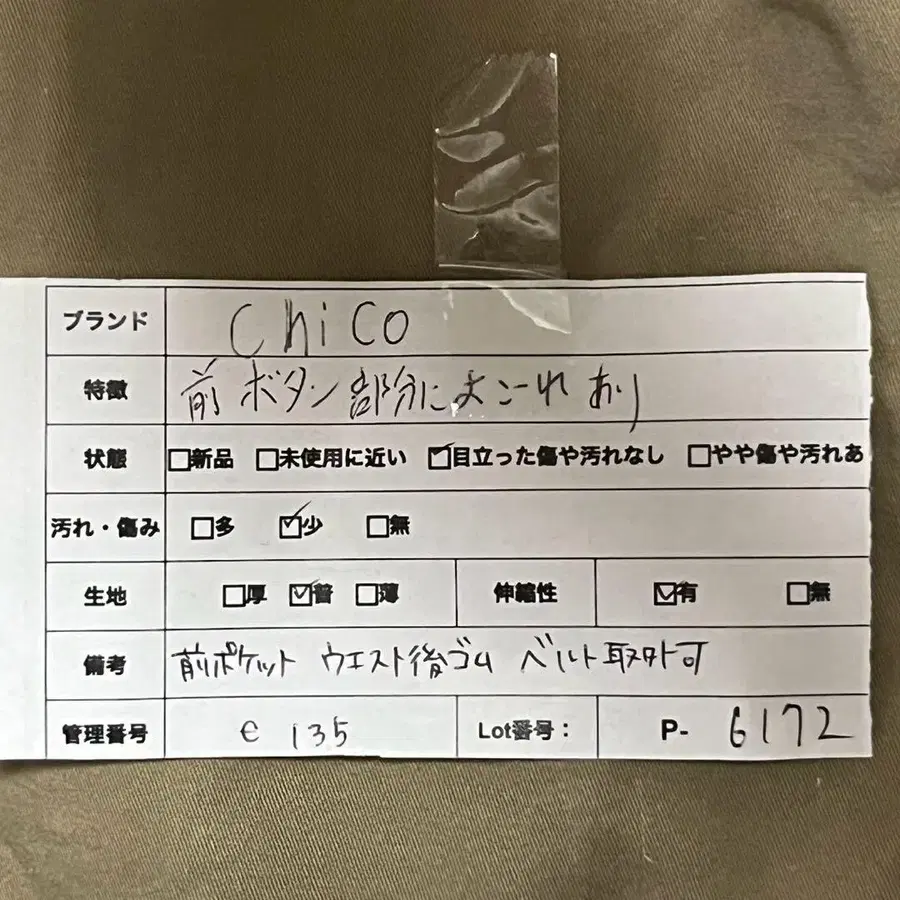 ブランド Chico
特徴 前ボタン部分によこれあり
状態 □新品 □未使用に近い ☑目立った傷や汚れなし □やや傷や汚れあ
汚れ・傷み □多 ☑少 □無
生地 □厚 ☑普 □薄 伸縮性 ☑有 □無
備考 前ポケット ウエスト後ゴム ベルト取外可
管理番号 e 135 Lot番号: P- 6172